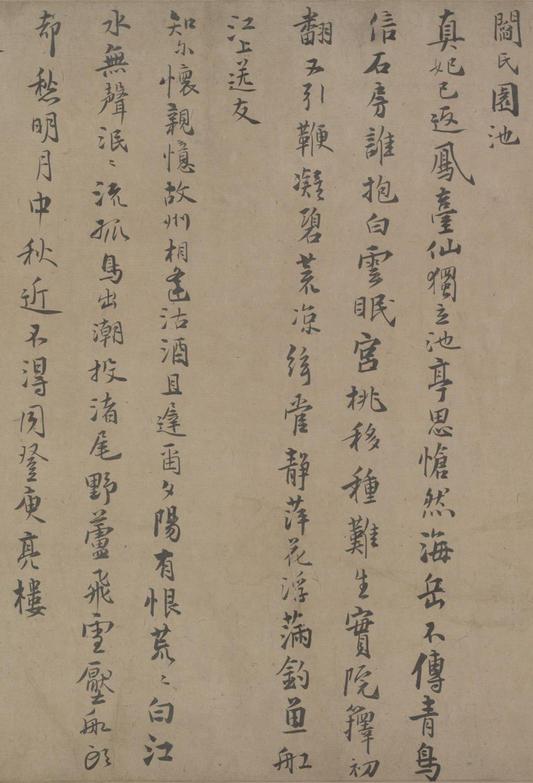 閻氏園池
真妃已返鳳臺仙獨立池亭思愴然海岳不傳青鳥
信石房誰抱白雲眠宮桃移種難生實院籜初
翻不引鞭凝碧荒涼絲管靜萍花浮滿釣魚舡
江上送友
知尔懷親憶故州相逢沽酒且遲留夕陽有恨荒〻白江
水無聲泯〻流孤鳥出潮投渚尾野蘆飛雪壓船頭
却愁明月中秋近不得同登庾亮樓